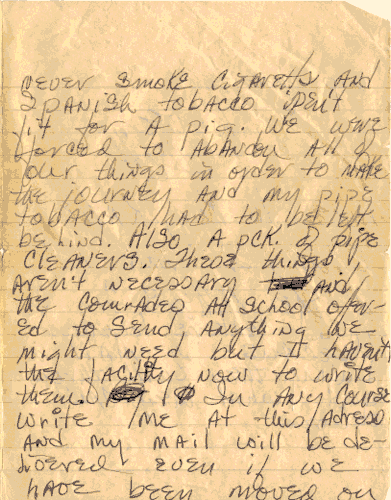 never smoke cigaretts and
Spanish tobacco isn't
fit for a pig. We were
forced to abandon all of
our things in order to make
the journey and my pipe
tobacco had to be left
behind. Also a pck. of pipe
cleaners. These things
aren't necessary and
the comrades at school offer-
ed to send anything we
might need but I haven't
the facility now to write
them. In any course
write me at this adress
and my mail will be de-
livered even if we
have been moved on